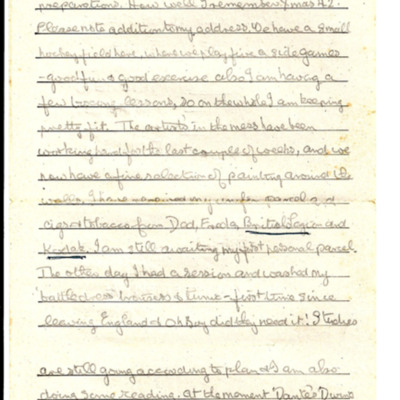 preparations. How well I remember Xmas 42.
Please note addition to my address. We have a small
hockey field here, where we play five a side games
- good fun & good exercise also I am having a
few boxing lessons, so on the whole I am keeping
pretty fit. The artists in the mess have been
working hard for the last couple of weeks, and we
now have a fine selection of painting around the
walls. I have received my
cigs & tobacco from Dad, Freda, British Legion and
Kodak. I am still awaiting my first personal parcel.
The other day I had a session and washed my
'battledress' trousers & tunic - first time since
leaving England & Oh Boy did they need it! Studies
are still going according to plan & I am also
doing some reading, at the moment 'Dante's'